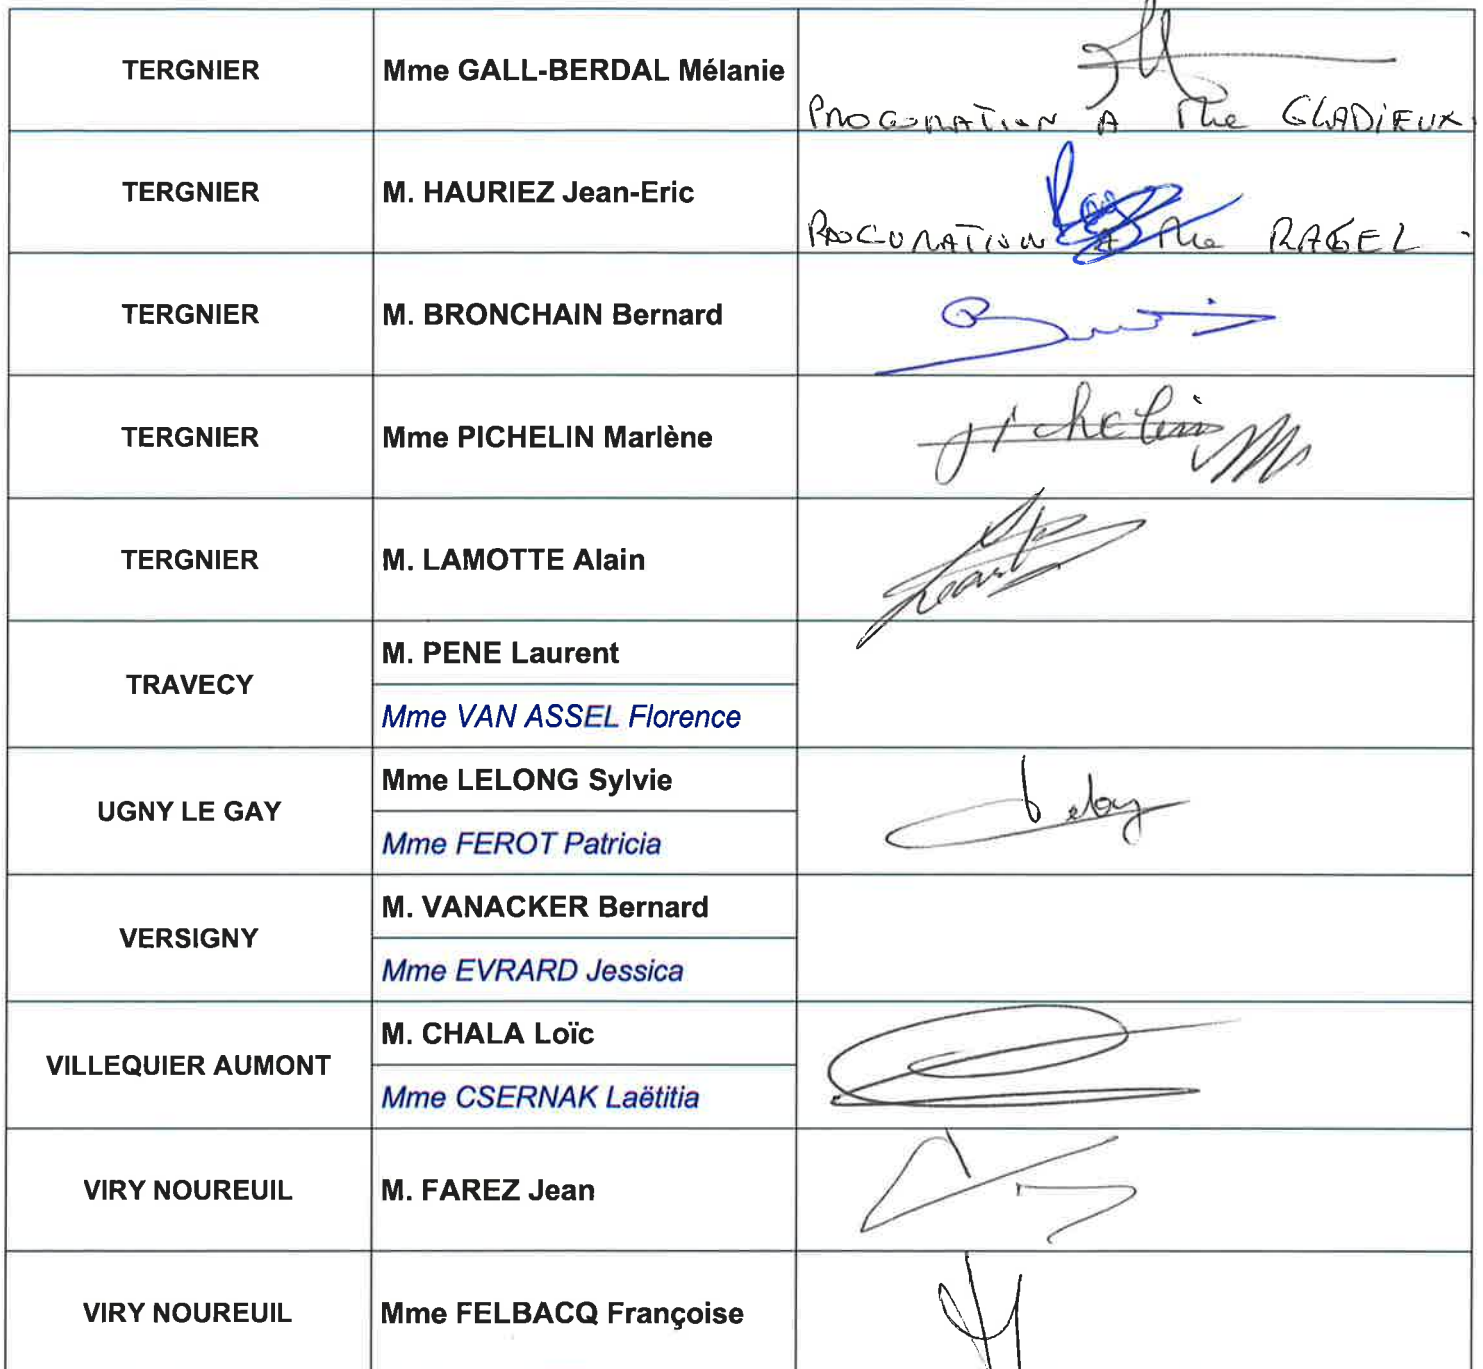 TERGNIER
Mme GALL-BERDAL Mélanie
PROCURATION A Mme GLADIEUX
TERGNIER
M. HAURIEZ Jean-Eric
PROCURATION A Mme RAGEL
TERGNIER
M. BRONCHAIN Bernard
TERGNIER
Mme PICHELIN Marlène
Pichelin
TERGNIER
M. LAMOTTE Alain
TRAVECY
M. PENE Laurent
Mme VAN ASSEL Florence
UGNY LE GAY
Mme LELONG Sylvie
Mme FEROT Patricia
VERSIGNY
M. VANACKER Bernard
Mme EVRARD Jessica
VILLEQUIER AUMONT
M. CHALA Loïc
Mme CSERNAK Laëtitia
VIRY NOUREUIL
M. FAREZ Jean
VIRY NOUREUIL
Mme FELBACQ Françoise